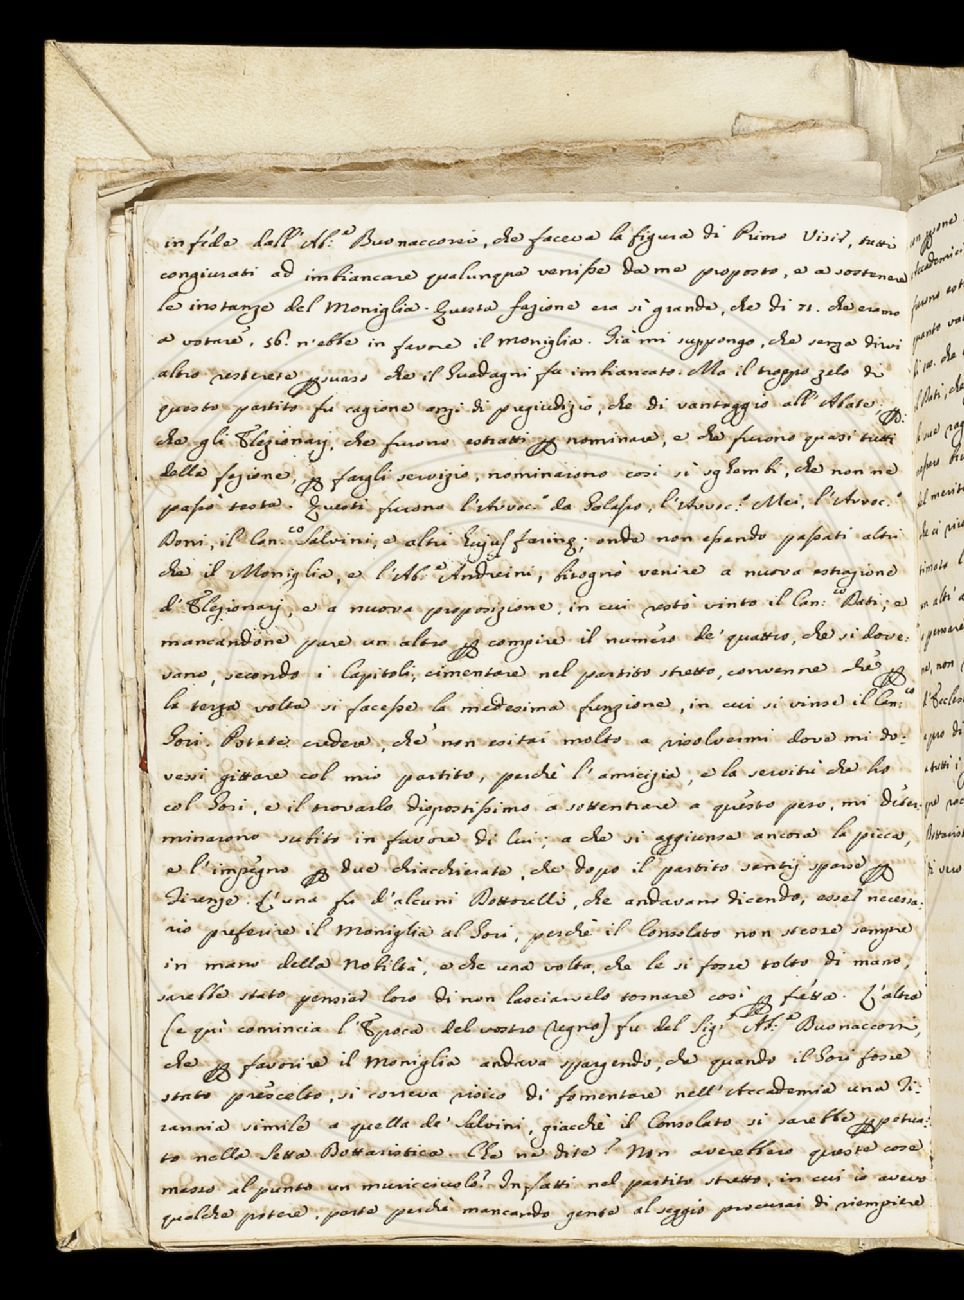 in fede dall' Ab.e Buonaccorsi, che faceva la figura di Primo Visir, tutti
congiurati ad imbiancare qualunque venisse da me proposto, e a sostenere
le instanze del Moniglia. Questa fazione era sì grande, che di 71. che eramo
a votare, 56. n'ebbe in favore il Moniglia. Già mi suppongo, che senza dirvi
altro resterete p̱suaso che il Guadagni fu imbiancato. Ma il troppo zelo di
questo partito fu cagione anzi di pregiudizio, che di vantaggio all'Abate; p̱-
che gli Elezionarj, che furono estratti p̱ nominare, e che furono quasi tutti
della fazione, p̱ fargli servizio, nominarono così sì sghembi, che non ne
passò testa. Questi furono l'Avvoc.o da Golasso, l'Avvoc.o Mei, l'Avvoc.o
Boni, il Can.co Salvini, e altri hujus farinę; onde non essendo passati altri
che il Moniglia, e l'Ab.e Andreini, bisognò venire a nuova estrazione
d'Elezionarj, e a nuova proposizione, in cui restò vinto il Can.co Bati; e
mancandone pure un altro p̱ compire il numero de' quattro, che si dove-
vano, secondo i Capitoli, cimentare nel partito stretto, convenne che p̱
la terza volta si facesse la medesima funzione, in cui si vinse il Can.co
Gori. Potete credere, che non esitai molto a risolvermi dove mi do-
vessi gittare col mio partito, perchè l'amicizia, e la servitù che ho
col Gori, e il trovarlo dispostissimo a sottentrare a questo peso, mi deter-
minarono subito in favore di lui; a che si aggiunse ancora la picca,
e l'impegno p̱ due chiacchierate, che dopo il partito santij sparse p̱
Firenze. L'una fu d'alcuni Bottorelli, che andavano dicendo, esser necessa-
rio preferire il Moniglia al Gori, perchè il Consolato non stesse sempre
in mano della Nobiltà, e che una volta, che le si fosse tolto di mano,
sarebbe stato pensier loro di non lasciarselo tornare così p̱ fretta. L'altra
(e quì comincia l'Epoca del vostro regno) fu del Sig.r Ab.e Buonaccorsi,
che p̱ favorire il Moniglia andava spargendo, che quando il Gori fosse
stato prescelto, si correva risico di fomentare nell'Accademia una Ti-
rannia simile a quella de' Salvini, giacchè il Consolato si sarebbe p̱petua-
to nella Setta Bottaristica. Che ne dite? Non averebbero queste cose
messo al punto un muricciuolo? In fatti nel partito stretto, in cui io avevo
qualche potere, parte perchè mancando gente al seggio procurai di riempiere